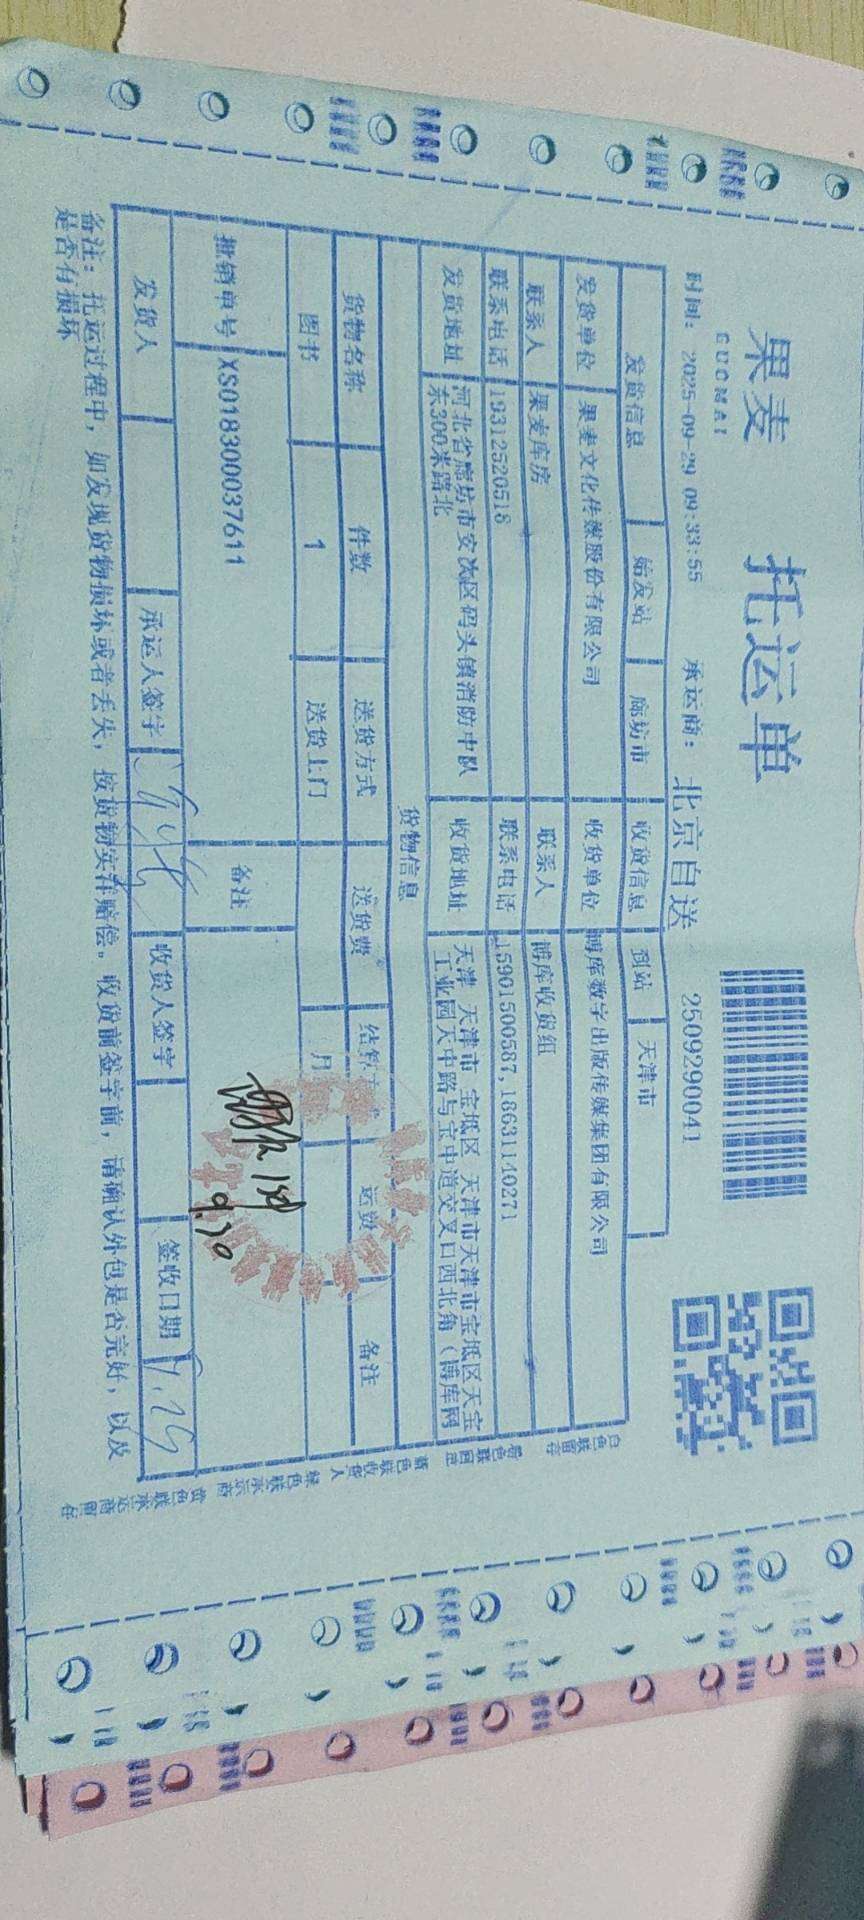 果麦
GUOMAI
托运单
2509290041
时间: 2025-09-29 09:33:55 承运商: 北京自送
发货信息 始发站 廊坊市 收货信息 到站 天津市
发货单位 果麦文化传媒股份有限公司 收货单位 博库数字出版传媒集团有限公司
联系人 果麦库房 联系人 博库收货组
联系电话 19312520518 联系电话 15901500587,18631140271
发货地址 河北省廊坊市安次区码头镇消防中队 收货地址 天津 天津市 宝坻区 天津市天津市宝坻区天宝
东300米路北 工业园天中路与宝中道交叉口西北角（博库网
货物信息
货物名称 件数 送货方式 送货费 结算方式 运费 备注
图书 1 送货上门 月
批销单号 XS018300037611 备注
9.30
发货人 承运人签字 收货人签字 签收日期 9.29
备注: 托运过程中, 如发现货物损坏或者丢失, 按货物实洋赔偿。收货前签字前, 请确认外包是否完好, 以及
是否有损坏
白色联留存
粉色联回仓
蓝色联收货人
绿色联承运商
黄色联承运商留存